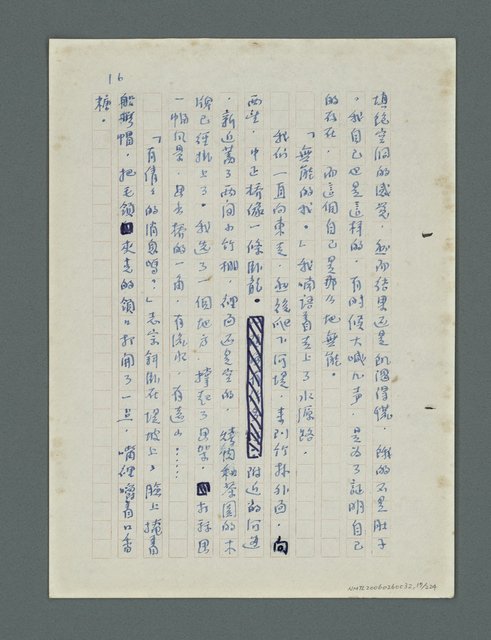 16
填起空洞的感覺，然而結果还是飢渴得慌，餓的不是肚子
，我自己也是這樣的，有的時候大喊几声，是為了証明自己
的存在，而這個自己是那么地無能。
「無能的我。」我喃語着走上了水源路。
我们一直向東走，然後爬下河堤，來到竹林外面，向
西望，中正橋像一條臥龍。附近的河边
，新近蓋了兩间小竹棚，裡面还是空的，螢橋納茶園的木
牌已經掛上了。我选了一個地方，撐起了画架，打稿画
一幅风景，是大橋的一角，有流水，有遠山……
「有倩的消息嗎？」志宗斜臥在堤坡上，臉上掩着
船形帽，把毛領夾克的領口打開了一点，嘴裡嚼着口香
糖。
NMTL20060260032_17/224